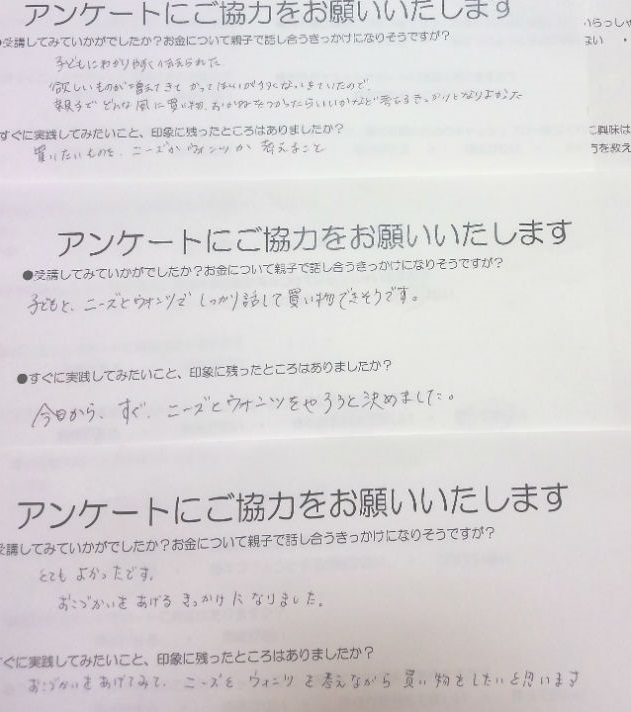 アンケートにご協力をお願いいたします
●受講してみていかがでしたか?お金について親子で話し合うきっかけになりそうですか?
子どもにわかりやすく伝えられた
欲しいものが増えてきて かってほしいがつよくなってきていたので、
親子でどんな風に買い物、おかねをつかったらいいかなど考えるきっかけとなりよかった
すぐに実践してみたいこと、印象に残ったところはありましたか?
買いたいものを、ニーズかウォンツか 考えること
いらっしゃ
まい ・
ご興味は
うを教え
アンケートにご協力をお願いいたします
●受講してみていかがでしたか?お金について親子で話し合うきっかけになりそうですか?
子どもと、ニーズとウォンツで しっかり話して買い物できそうです。
●すぐに実践してみたいこと、印象に残ったところはありましたか?
今日から、すぐ、ニーズとウォンツをやろうと決めました。
アンケートにご協力をお願いいたします
受講してみていかがでしたか?お金について親子で話し合うきっかけになりそうですか?
とても よかったです。
おこづかいを あげる きっかけ に なりました。
すぐに実践してみたいこと、印象に残ったところはありましたか?
おこづかいをあげてみて、ニーズと ウォンツ を 考えながら 買い物をしたいと思います